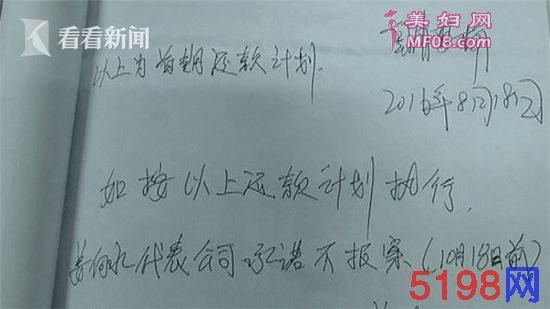 看看新闻
美妇网
MF08.com
以上为首期还款计划.
2016年8月18日
如按以上还款计划执行,
代表公司承诺不报案(10月18日前)
5198网